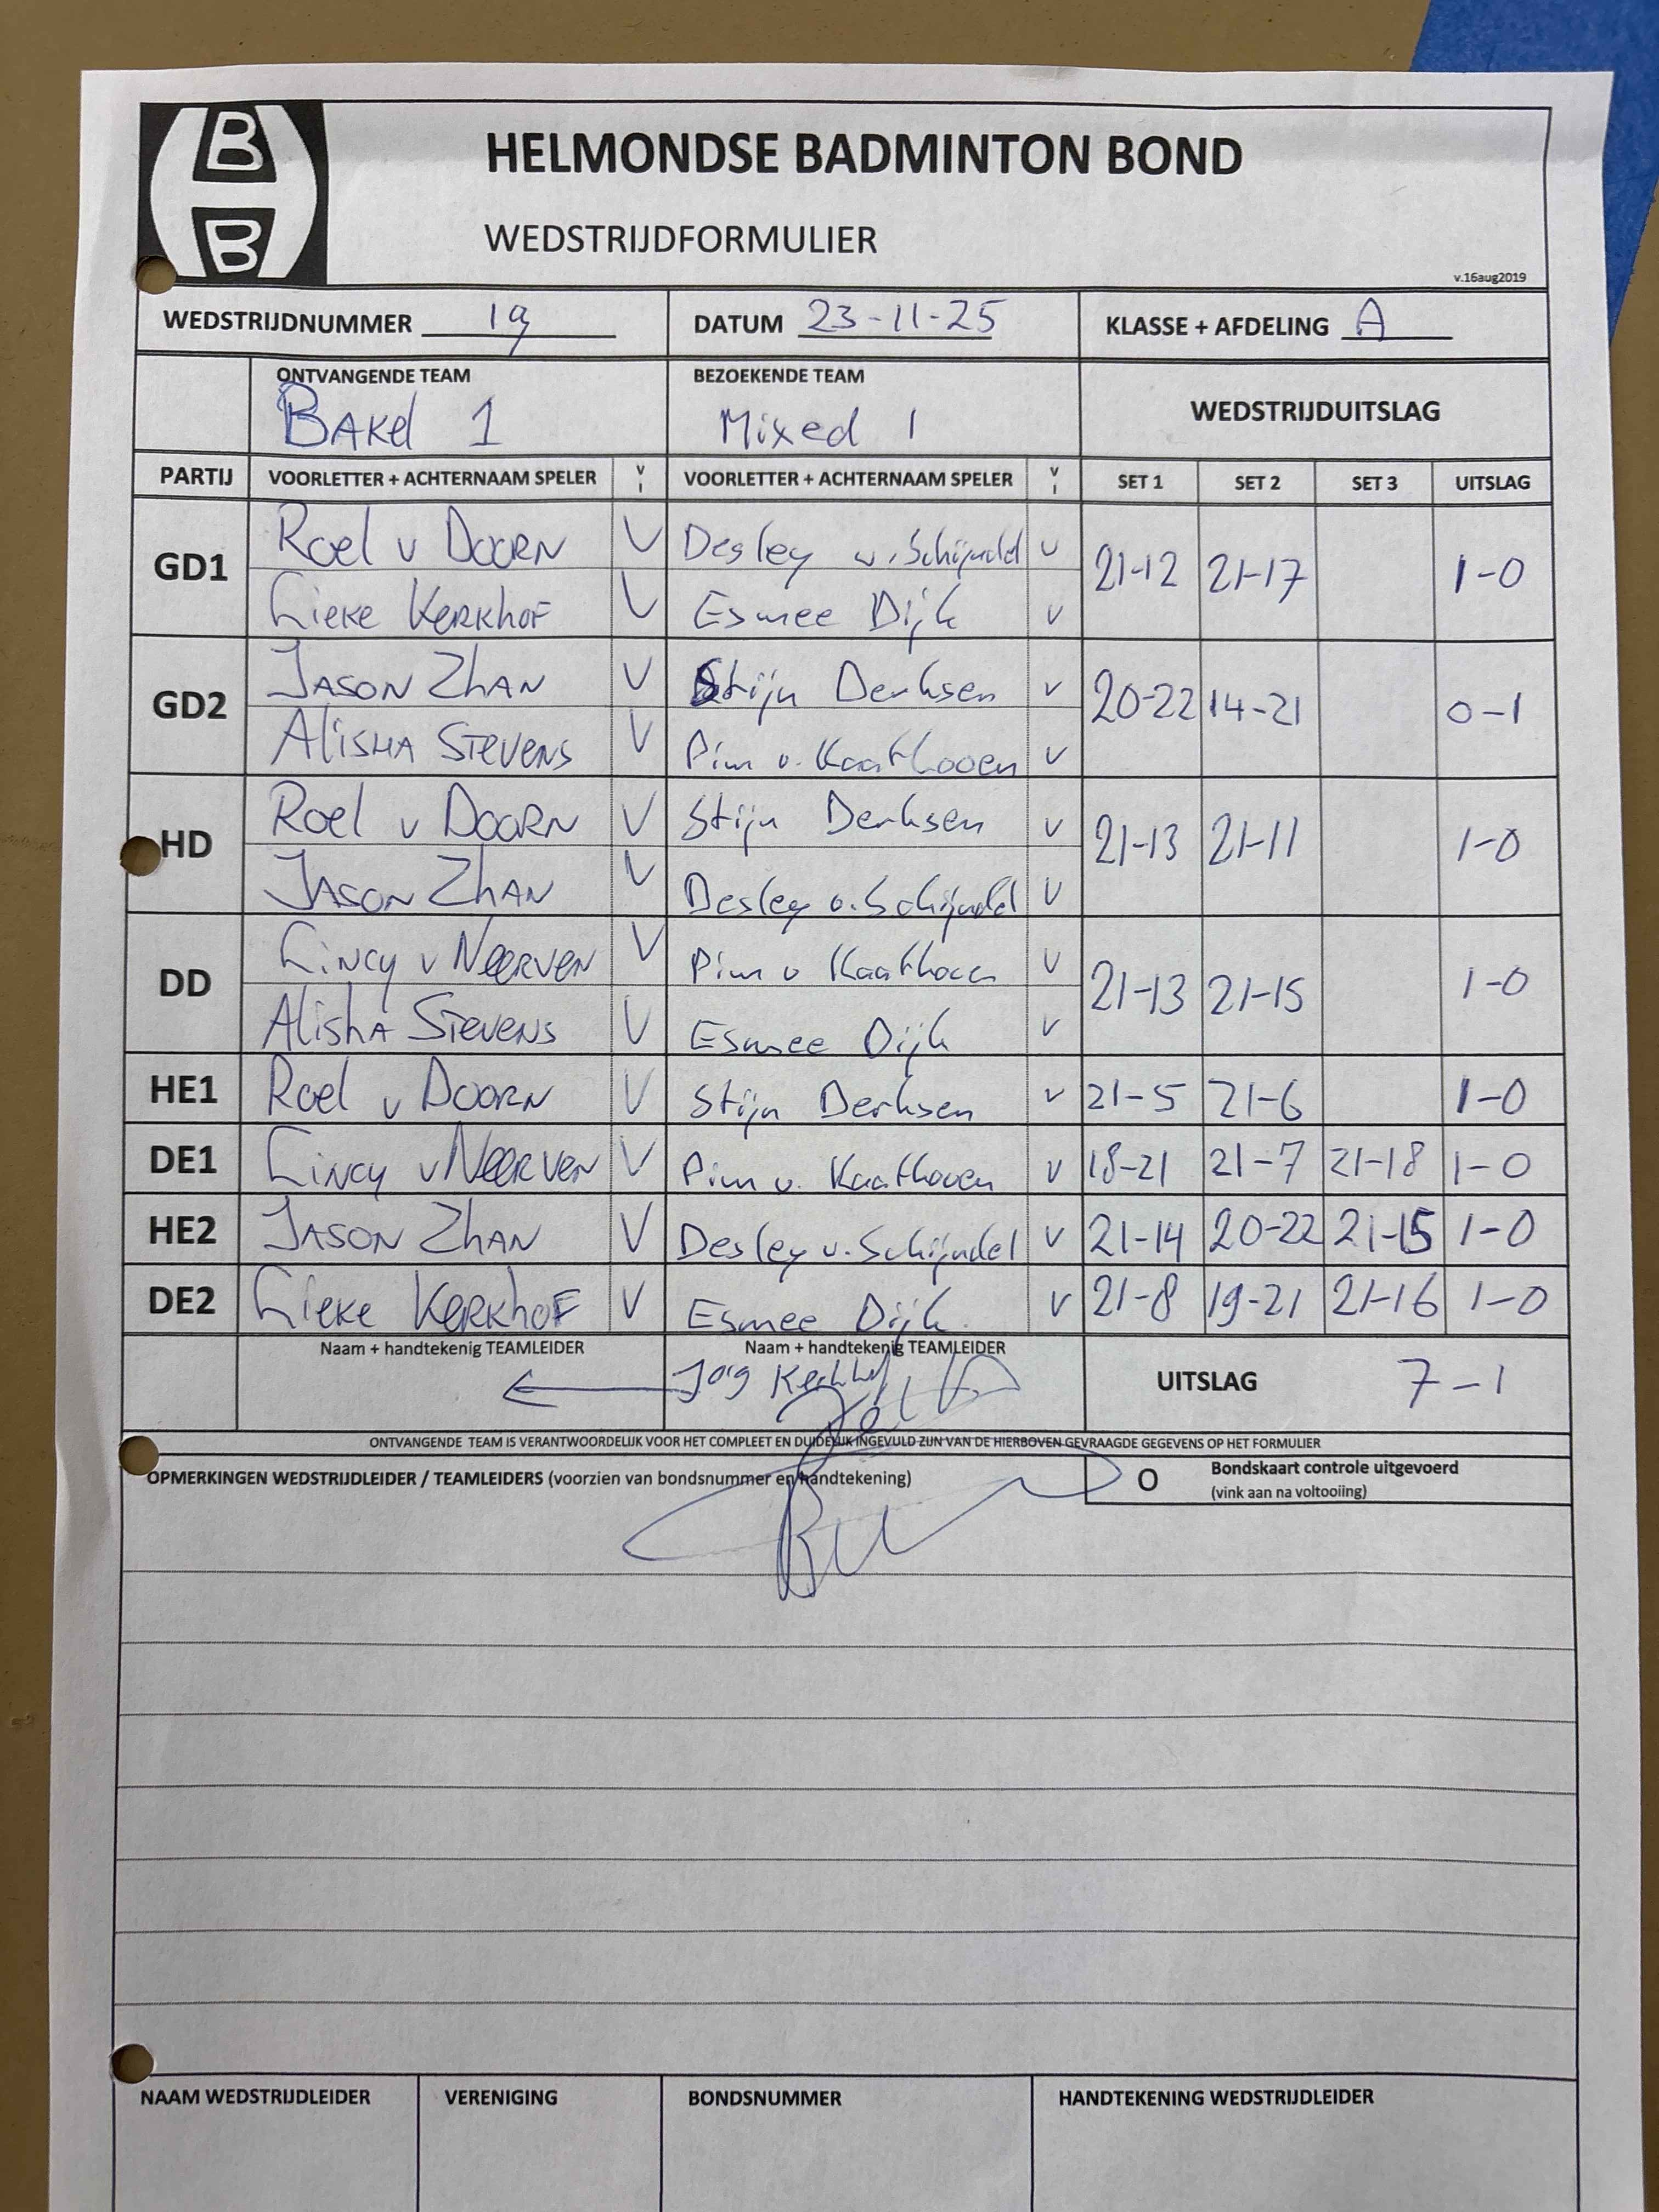 B
B
HELMONDSE BADMINTON BOND
WEDSTRIJDFORMULIER
v.16aug2019
WEDSTRIJDNUMMER 19 DATUM 23-11-25 KLASSE + AFDELING A
ONTVANGENDE TEAM BEZOEKENDE TEAM WEDSTRIJDUITSLAG
BAKel 1 Mixed 1
PARTIJ VOORLETTER + ACHTERNAAM SPELER V I VOORLETTER + ACHTERNAAM SPELER V I SET 1 SET 2 SET 3 UITSLAG
GD1 Roel v DOORN V Desley v. Schijndel v 21-12 21-17 1-0
Lieke KerkhoF V Esmee Dijk v
GD2 JASON ZhAN V Stijn Derksen v 20-22 14-21 0-1
AlisHA STeVeNS V Pim v. Kaathoven v
HD Roel v DOORN V Stijn Derksen v 21-13 21-11 1-0
JASON ZhAN V Desley v. Schijndel v
DD Lincy v NeerveN V Pim v Kaathoven v 21-13 21-15 1-0
AlishA STeveNS V Esmee Dijk v
HE1 Roel v DOORN V Stijn Derksen v 21-5 21-6 1-0
DE1 Lincy v NeerveN V Pim v. Kaathoven v 18-21 21-7 21-18 1-0
HE2 JASON ZhAN V Desley v. Schijndel v 21-14 20-22 21-15 1-0
DE2 Lieke KerkhoF V Esmee Dijk. v 21-8 19-21 21-16 1-0
Naam + handtekenig TEAMLEIDER Naam + handtekenig TEAMLEIDER
UITSLAG 7-1
ONTVANGENDE TEAM IS VERANTWOORDELIJK VOOR HET COMPLEET EN DUIDELIJK INGEVULD ZIJN VAN DE HIERBOVEN GEVRAAGDE GEGEVENS OP HET FORMULIER
OPMERKINGEN WEDSTRIJDLEIDER / TEAMLEIDERS (voorzien van bondsnummer en handtekening) O Bondskaart controle uitgevoerd
(vink aan na voltooiing)
NAAM WEDSTRIJDLEIDER VERENIGING BONDSNUMMER HANDTEKENING WEDSTRIJDLEIDER